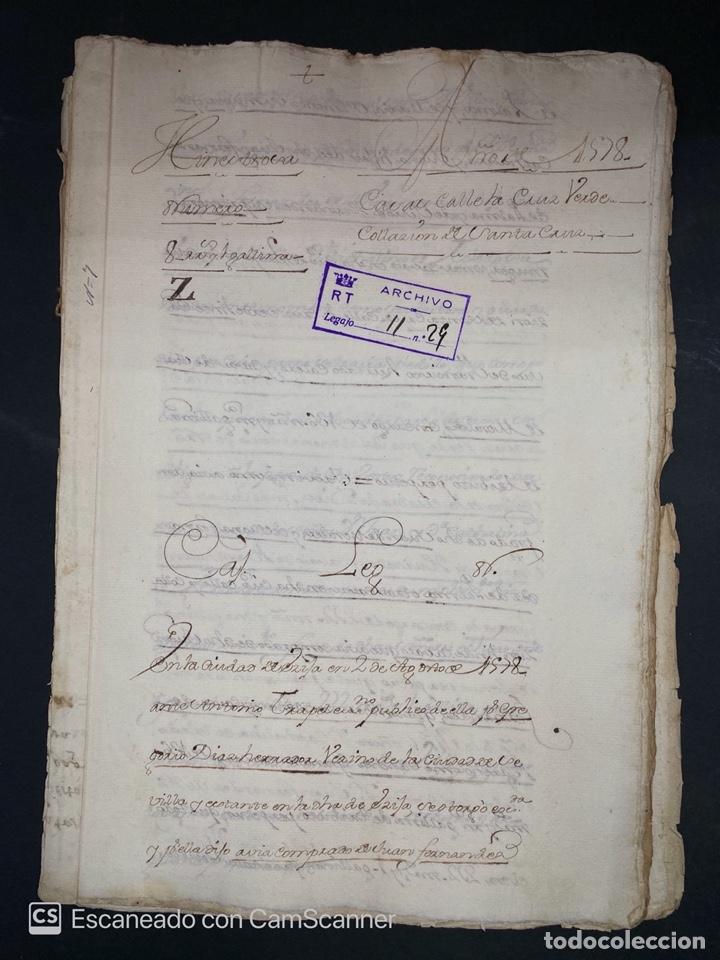 Hinestrosa
Año de 1578
Numero
Casas Calle la Cruz Verde
Collazion de Santa Cruz
gallina
Z
ARCHIVO
RT
Legajo 11 n.º 29
Cax. Leg. N.
En la ciudad de Ezija en 2 de Agosto de 1578
ante Antonio Trapel esno publico de ella pe Gre
gorio Diaz herrador Vezino de la Ciudad de Se
villa y estante en la dha de Ezija se otorgo essda
y por ella dijo avia comprado de Juan fernandez
CS Escaneado con CamScanner
todocoleccion